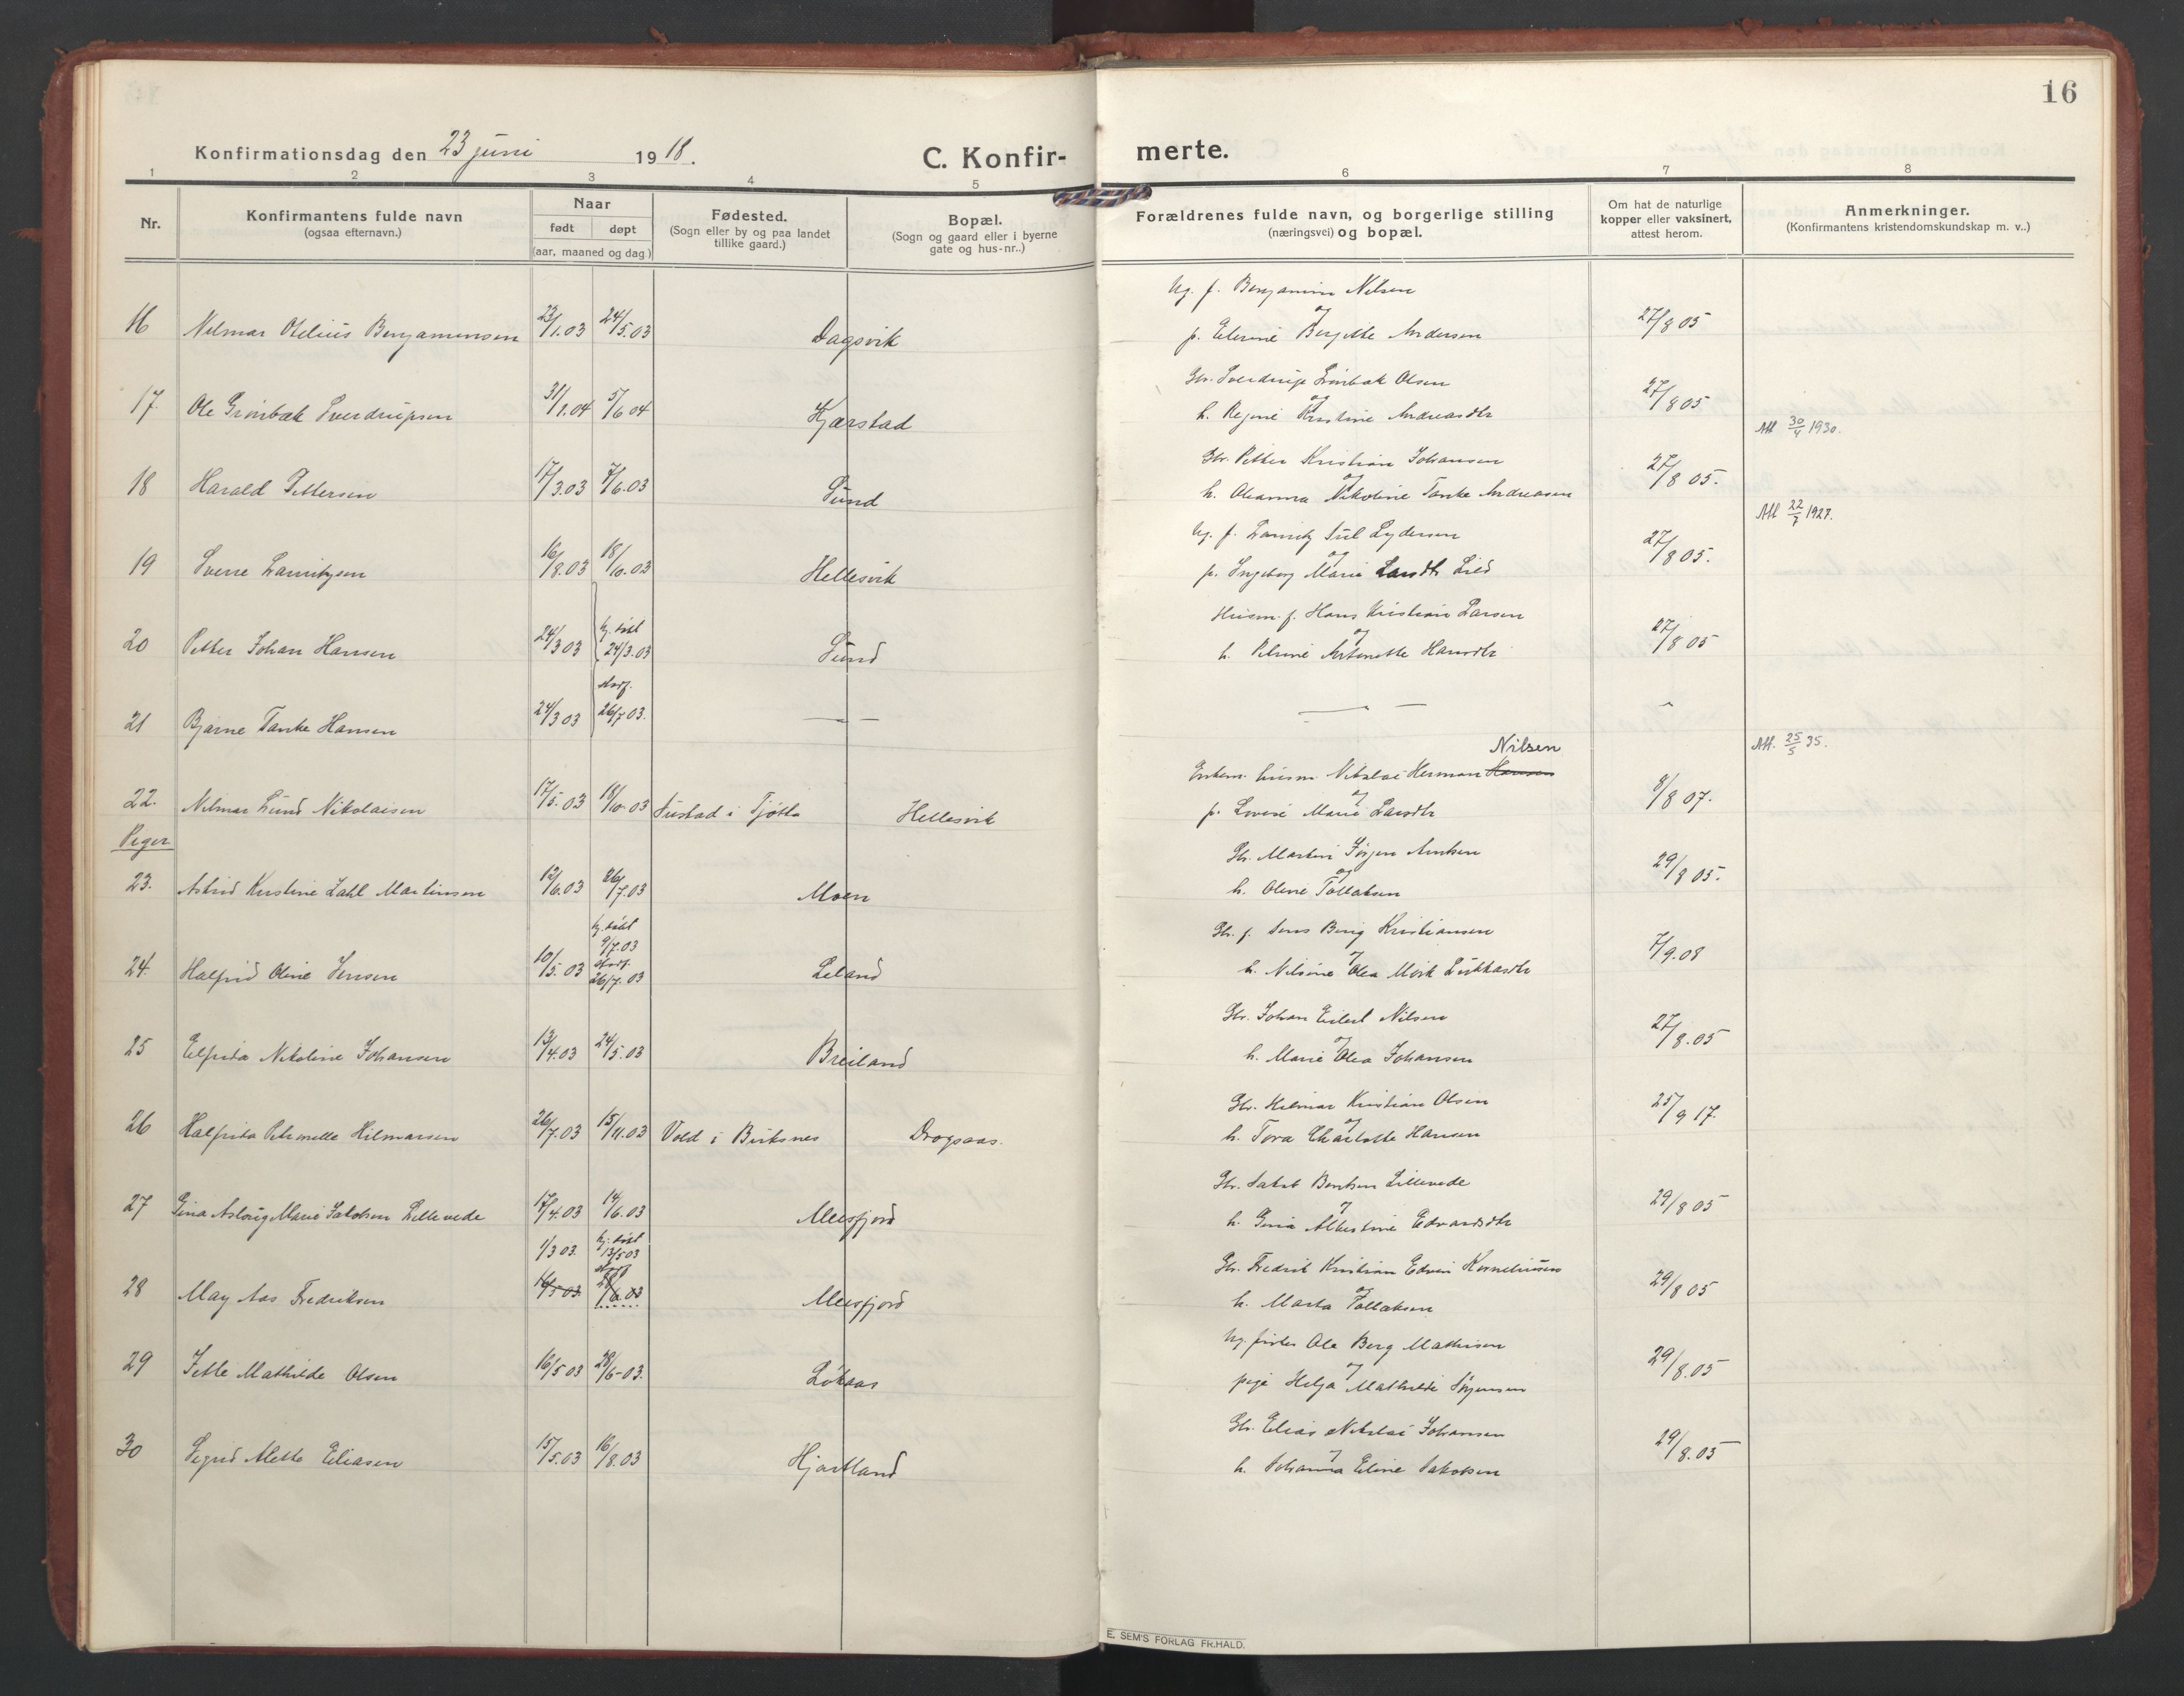 16
Konfirmationsdag den 23 juni 1918.
C. Konfir-
merte.
1 2 3 4 5 6 7 8
Nr.
Konfirmantens fulde navn
(ogsaa efternavn.)
Naar
født døpt
(aar, maaned og dag)
Fødested.
(Sogn eller by og paa landet
tillike gaard.)
Bopæl.
(Sogn og gaard eller i byerne
gate og hus-nr..)
Forældrenes fulde navn, og borgerlige stilling
(næringsvei) og bopæl.
Om hat de naturlige
kopper eller vaksinert,
attest herom.
Anmerkninger.
(Konfirmantens kristendomskundskap m. v..)
Ug. f. Benjamin Nilsen
16 Hilmar Otelius Benjaminsen 23/1.03 24/5.03 Dagsvik og 27/8 05
p. Elerine Bergitte Andersen
Gbr. Sverdrup Grönbæk Olsen
17. Ole Grönbæk Sverdrupsen 31/1.04 5/6 04 Kjærstad og 27/8 05
h. Regine Kristine Andreasdtr
Att 30/4 1930.
Gbr. Petter Kristian Johansen
18 Harald Pettersen 17/3.03 7/6.03 Sund og 27/8 05.
h. Oleanna Nikoline Tanke Andreasen
Att 22/7 1927.
Ug. f. Lauritz Jul Lydersen
19 Sverre Lauritzsen 16/8.03 18/10.03 Hellesvik og 27/8 05.
p. Ingeborg Marie Larsdtr Lied
Husm. f. Hans Kristian Larsen
20 Petter Johan Hansen 24/3 03 hj. döbt 24/3.03 Sund og 27/8 05
h. Petrine Antonette Hansdtr
stadf.
21 Bjarne Tanke Hansen 24/3 03 26/7 03. — —
Nilsen
Att. 25/5 35.
Enkem. husm. Nikolai Herman Hansen
22. Hilmar Lund Nikolaisen 17/5.03 18/10-03 Sustad i Tjøtta Hellesvik og 8/8 07.
p. Lovise Marie Larsdtr
Piger
Gbr. Martin Jörgen Arntsen
23. Astrid Kristine Zahl Martinsen 12/6.03 26/7.03 Moen og 29/8 05.
h. Oline Tollaksen
hj. döbt
9/7.03
Gbr. f. Jens Berig Kristiansen
24. Halfrid Oline Jensen 10/5.03 stadf. 26/7.03 Leland og 7/9.08
h. Nilsine Olea Mörk Lukkasdtr
Gbr. Johan Edert Nilsen
25 Elfrida Nikoline Johansen 13/4.03 24/5.03 Breiland og 27/8.05
h. Marie Olea Johansen
Gbr. Hilmar Kristian Olsen
26 Halfrida Petronelle Hilmarsen 26/7.03 15/11.03 Vold i Birksnes Dragsaas. og 25/9 17.
h. Tora Charlotte Hansen
Gbr. Jakob Bentsen Lillevede
27 Gina Aslaug Marie Jakobsen Lillevede 17/4.03 14/6.03 Meisfjord og 29/8 05
h. Gina Albertine Edvardsdtr
1/3 03. hj. döbt
13/5 03
Gbr. Fredrik Kristian Edvin Korneliussen
stadf.
28 May Aas Fredriksen 16/5 03 28/6.03 Meisfjord og 29/8 05
h. Marta Tollaksen
Ug. fisker Ole Berg Mathisen
29 Jette Mathilde Olsen 16/5 03 28/6-03. Lökaas og 29/8.05
pige Helga Mathilde Jörgensen
Gbr. Elias Nikolai Johansen
30 Sigrid Alette Eliasen 15/5.03 16/8.03 Hjartland og 29/8.05
h. Johanna Eline Jakobsen
E. SEM'S FORLAG FR.HALD.